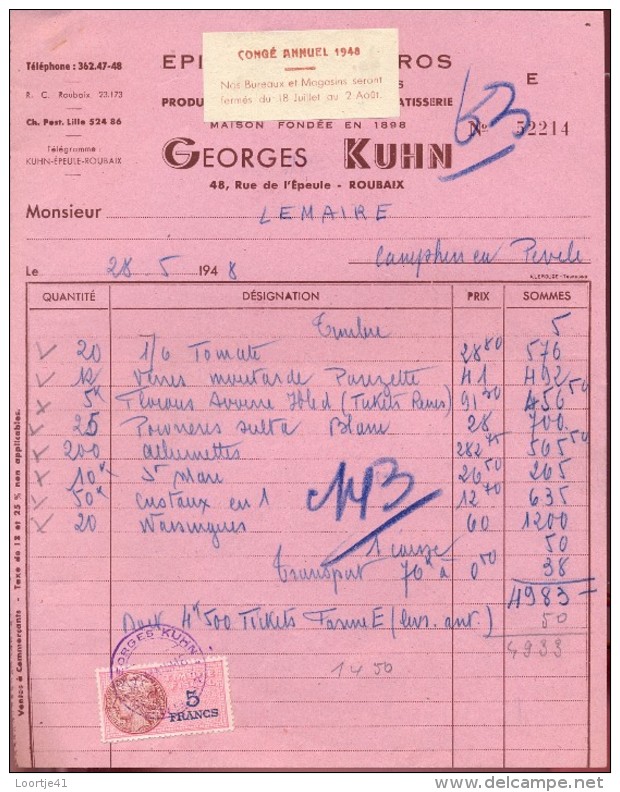 CONGÉ ANNUEL 1948
Nos Bureaux et Magasins seront
fermés du 18 Juillet au 2 Août.
Téléphone : 362.47-48
EPI ROS
E
R. C. Roubaix 23.173
PRODU ATISSERIE
63
Ch. Post. Lille 524 86
MAISON FONDÉE EN 1898
No 52214
Télégramme :
KUHN-ÉPEULE-ROUBAIX
GEORGES KUHN
48, Rue de l'Épeule - ROUBAIX
Monsieur LEMAIRE
Camphin en Pevele
Le 28 - 5 - 1948
QUANTITÉ DÉSIGNATION PRIX SOMMES
Timbre 5
20 1/6 Tomate 28 80 576
12 Verres moutarde 41 492
5K (Tickets 91 30 456 50
25 Blanc 28 700
200 allumettes 282 75 565 50
10K 26 50 265
50K Cristaux en 1 12 70 635
20 Wassingues 60 1200
143
1 caisse 50
Transport 76K à 0 50 38
4983
Doit 4K500 Tickets Farine E (livs. ant.) 50
4933
1450
GEORGES KUHN
5
FRANCS
Ventes à Commerçants - Taxe de 12 et 25 % non applicables.
Loortje41
www.delcampe.net